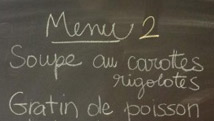 Menu 2
Soupe au carottes
rigolotes
Gratin de poisson